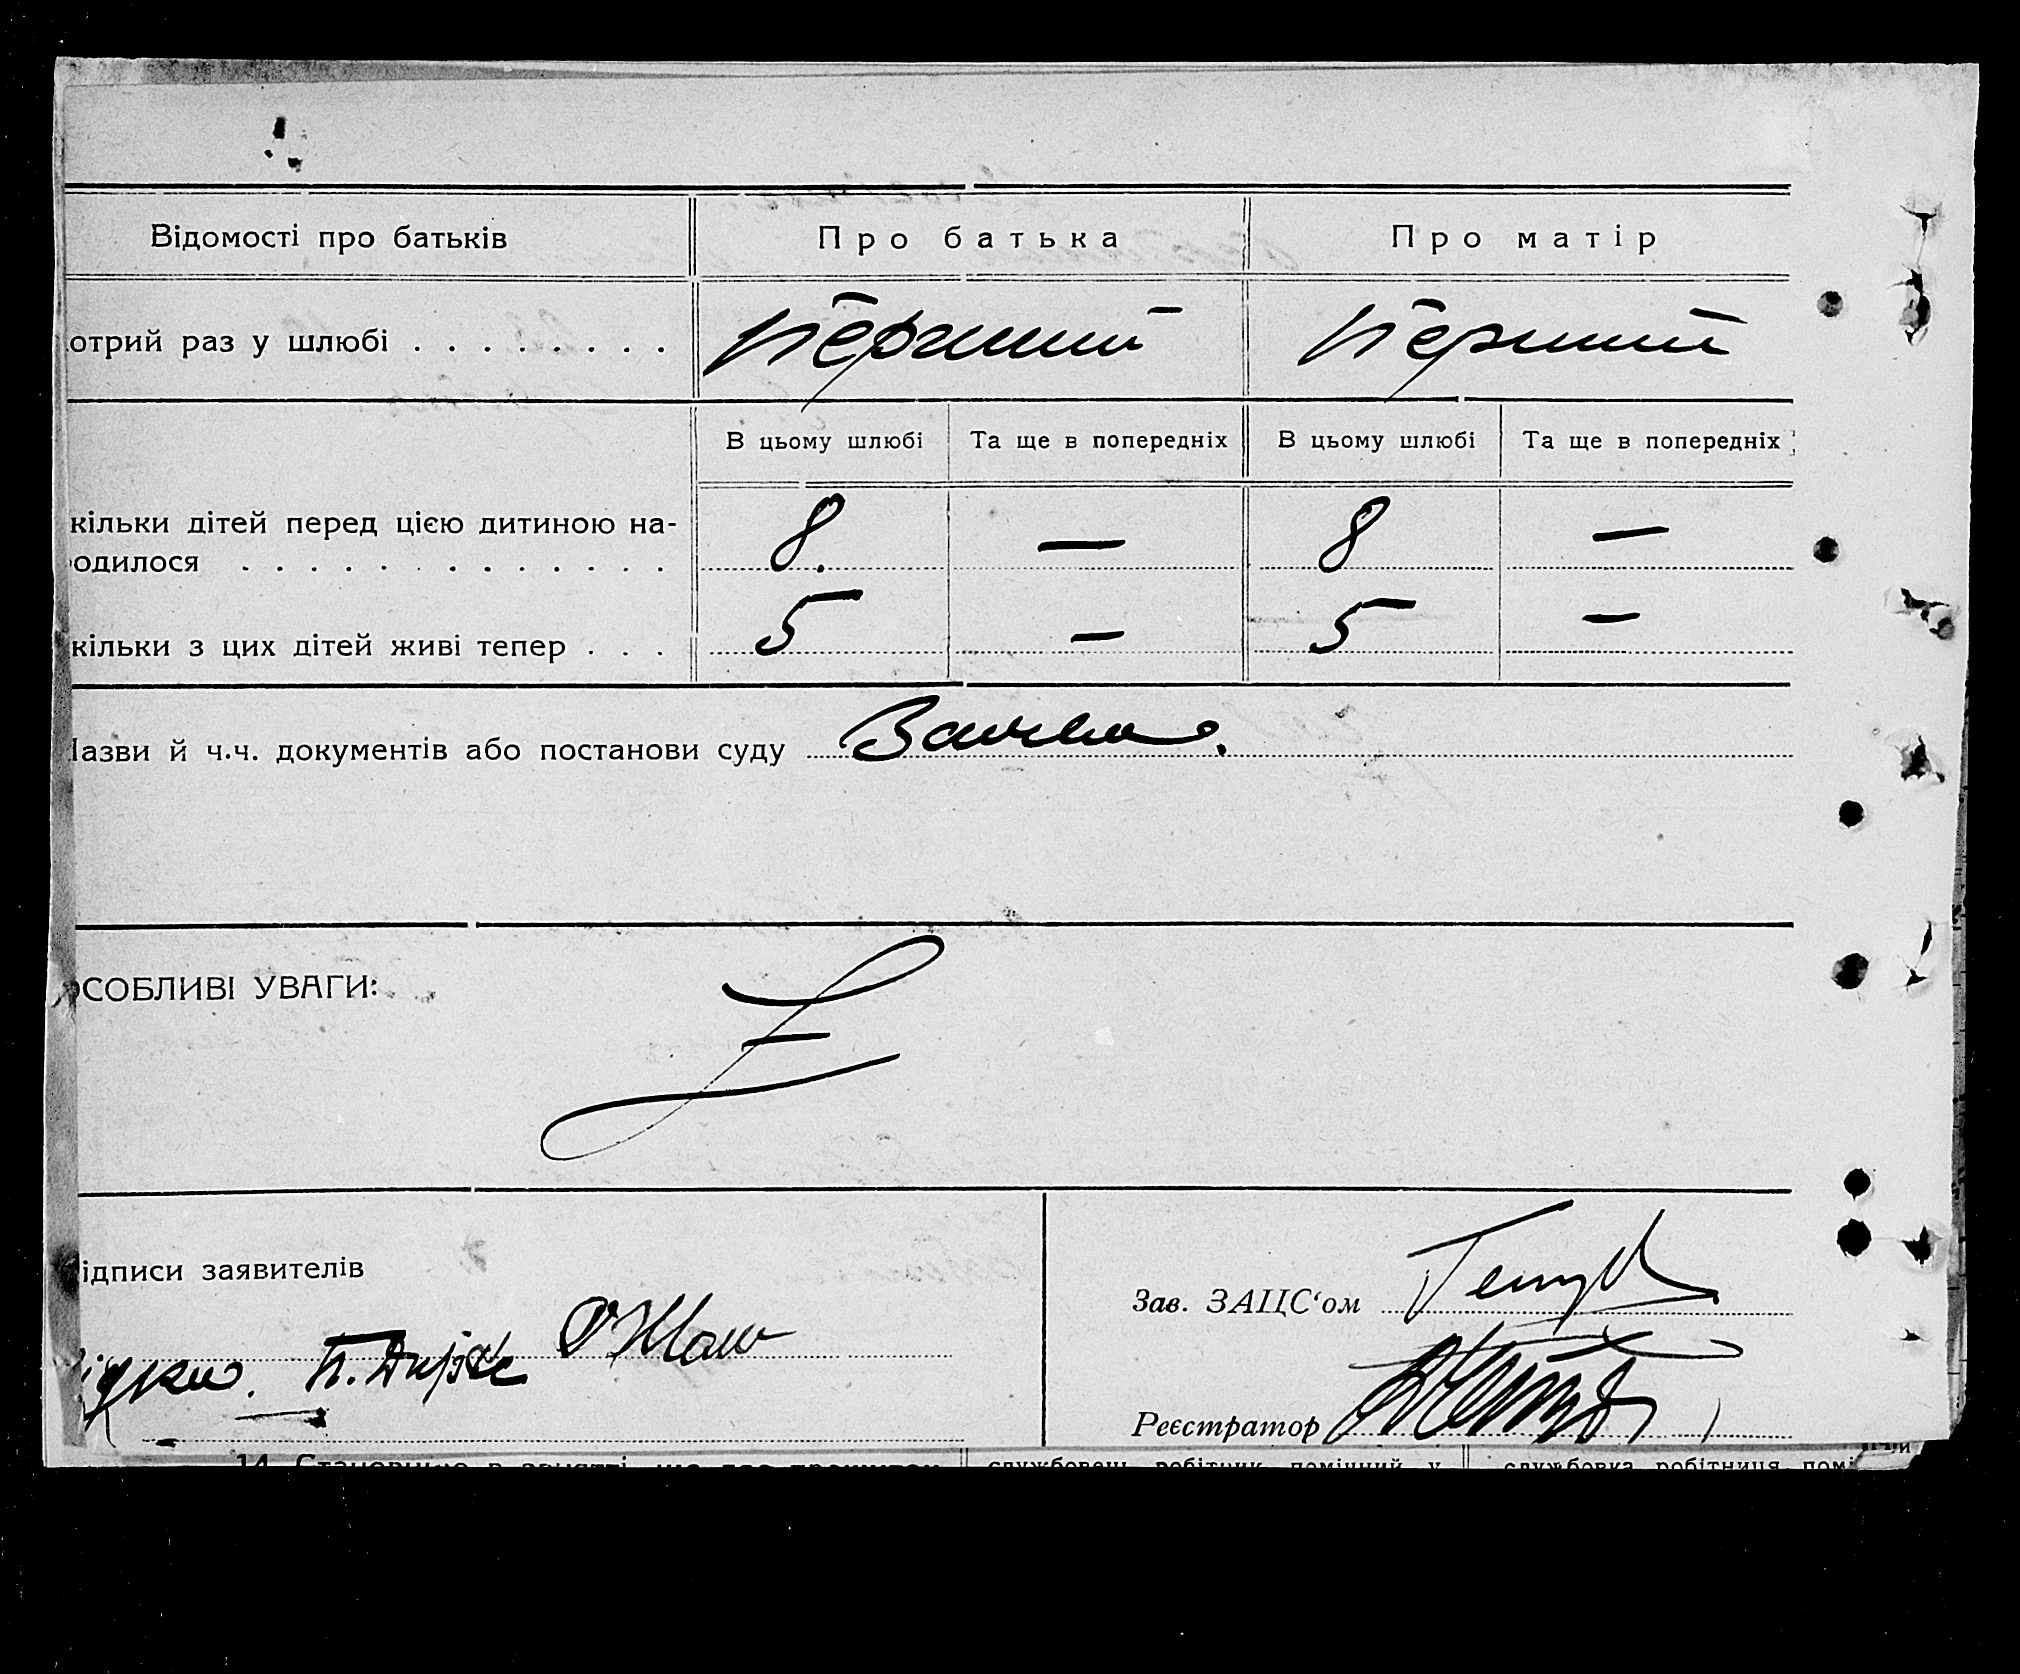 Відомості про батьків Про батька Про матір
отрий раз у шлюбі . . . . . . . . перший перший
В цьому шлюбі Та ще в попередніх В цьому шлюбі Та ще в попередніх
кільки дітей перед цією дитиною на-
одилося . . . . . . . . . . . . . 8. — 8 —
кільки з цих дітей живі тепер . . . 5 — 5 —
азви й ч.ч. документів або постанови суду
ОСОБЛИВІ УВАГИ:
ідписи заявителів
Зав. ЗАЦС‘ом
Реєстратор
14. Становище в занятті, що дає прожиток службовець, робітник, помічний у службовка, робітниця, помі